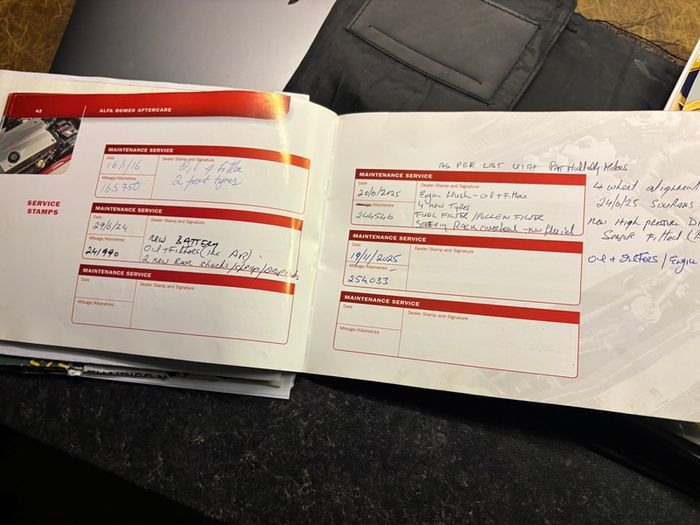 42
ALFA ROMEO AFTERCARE
SERVICE
STAMPS
MAINTENANCE SERVICE
Date
Dealer Stamp and Signature
16/1/16
Oil & Filter
Mileage/Kilometres
2 front tyres
165,750
MAINTENANCE SERVICE
Date
Dealer Stamp and Signature
29/6/24
New BATTERY
Mileage/Kilometres
Oil + Filters (inc Air)
241990
2 new Rear shocks
MAINTENANCE SERVICE
Date
Dealer Stamp and Signature
Mileage/Kilometres
AS PER LIST WITH Pat Mullally Motors
MAINTENANCE SERVICE
Date
Dealer Stamp and Signature
20/6/2025
Engine Flush - oil + Filters
4 new Tyres
Mileage/Kilometres
FUEL FILTER / POLLEN FILTER
244546
Steering Rack overhaul - new fluid
4 wheel alignment
24/6/25
New High pressure
Sensor Fitted
MAINTENANCE SERVICE
Date
Dealer Stamp and Signature
19/11/2025
Oil + Filters / Engine
Mileage/Kilometres
254033
MAINTENANCE SERVICE
Date
Dealer Stamp and Signature
Mileage/Kilometres